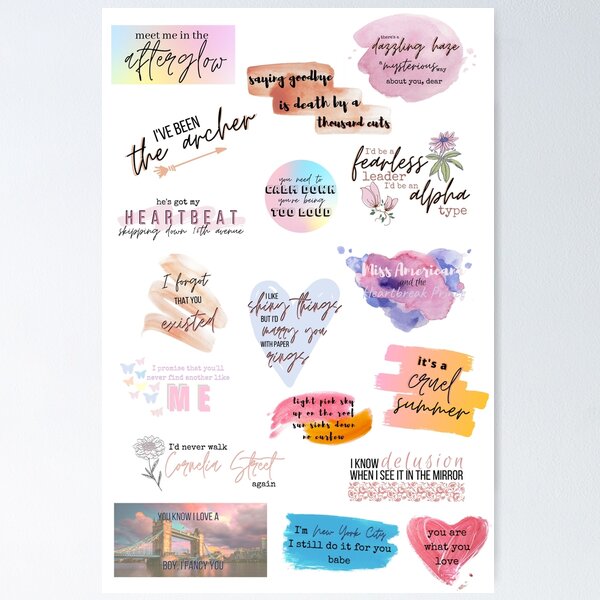 meet me in the
afterglow
there's a
dazzling haze
a mysterious way
about you, dear
saying goodbye
is death by a
thousand cuts
I'VE BEEN
the archer
I'd be a
fearless
leader
I'd be an
alpha
type
you need to
CALM DOWN
you're being
TOO LOUD
he's got my
HEARTBEAT
skipping down 16th avenue
I forgot
THAT YOU
existed
I LIKE
shiny things
BUT I'D
marry you
WITH PAPER
rings
Miss Americana
and the
Heartbreak Prince
I promise that you'll
never find another like
ME
it's a
cruel
summer
light pink sky
up on the roof
sun sinks down
no curfew
I'd never walk
Cornelia Street
again
I KNOW delusion
WHEN I SEE IT IN THE MIRROR
YOU KNOW I LOVE A
BOY, I FANCY YOU
I'm New York City
I still do it for you
babe
you are
what you
love